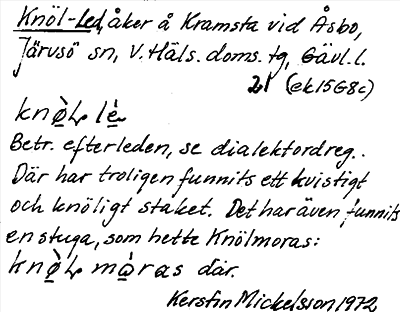 Knöl-Led, åker å Kramsta vid Åsbo,
Järvsö sn, V. Häls. doms. tg, Gävl. l.
21 (ek 15G8c)
knø̀L lè
Betr. efterleden, se dialektordreg..
Där har troligen funnits ett kvistigt
och knöligt staket. Det har även funnits
en stuga, som hette Knölmoras:
knø̀L mòras där.
Kerstin Mickelsson 1972